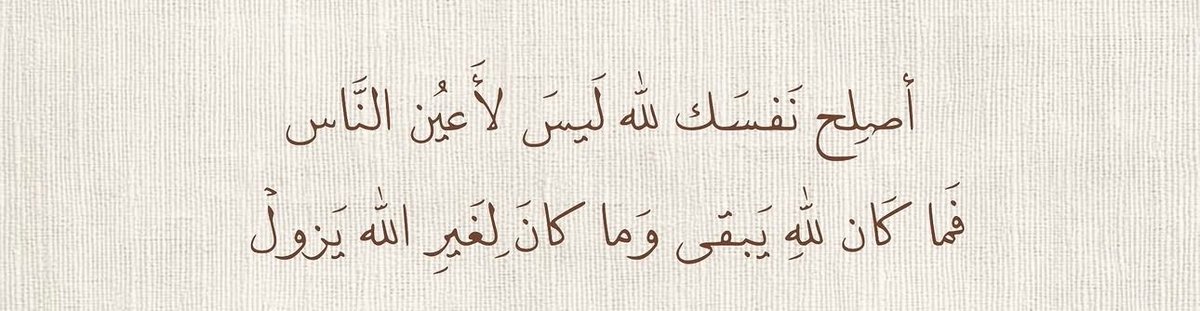 أصلِح نَفسَك لله لَيسَ لأَعيُن النَّاس
فَما كَان للهِ يَبقى وَما كانَ لِغَيرِ الله يَزولْ